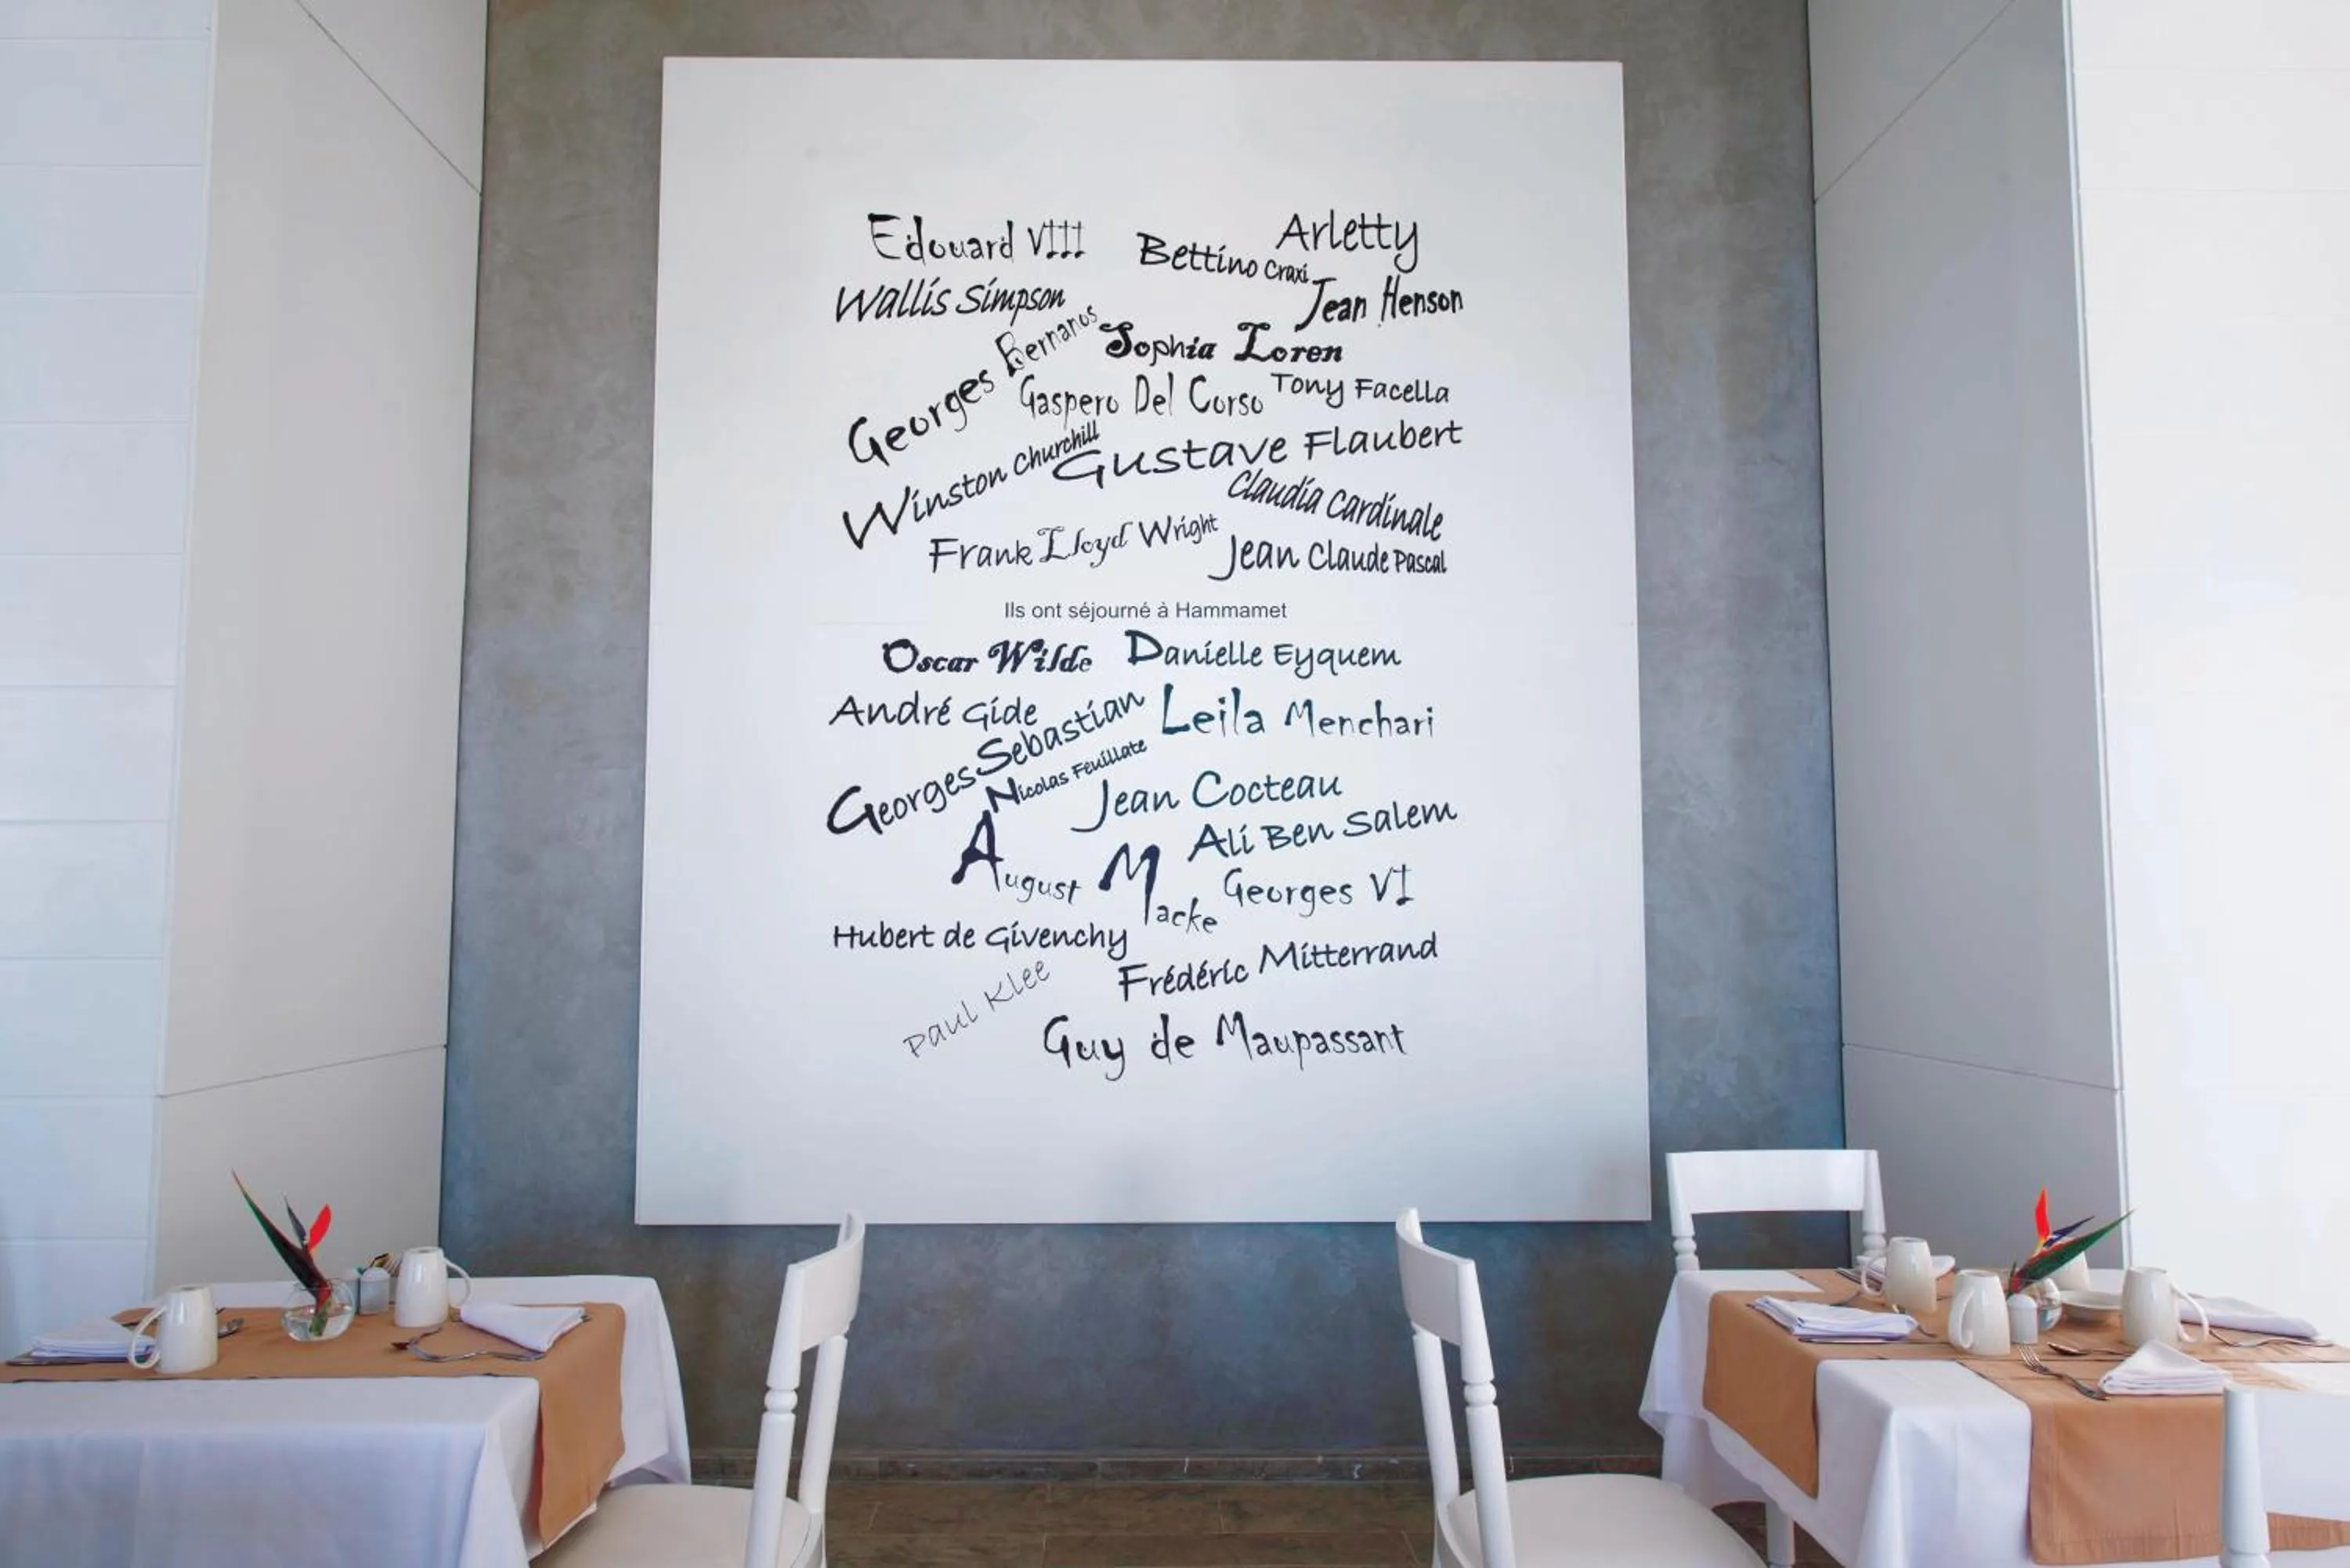 Edouard VIII
Arletty
Bettino Craxi
Wallis Simpson
Jean Henson
Georges Bernanos
Sophia Loren
Gaspero Del Corso
Tony Facella
Winston Churchill
Gustave Flaubert
Claudia Cardinale
Frank Lloyd Wright
Jean Claude Pascal
Ils ont séjourné à Hammamet
Oscar Wilde
Danielle Eyquem
André Gide
Georges Sebastian
Leila Menchari
Nicolas Feuillate
Jean Cocteau
Ali Ben Salem
August Macke
Georges VI
Hubert de Givenchy
Frédéric Mitterrand
Paul Klee
Guy de Maupassant